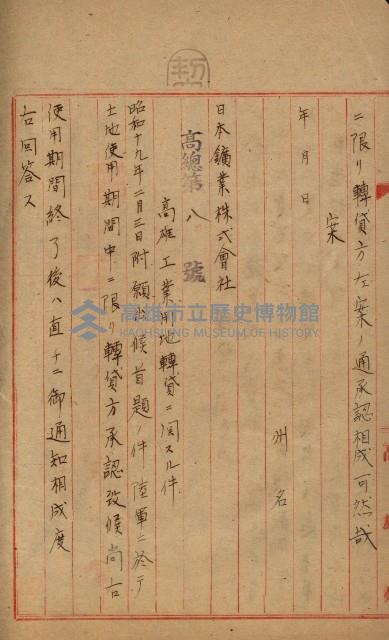 ニ限リ轉貸方左案ノ通承認相成可然哉
案
年 月 日
州名
日本鑛業株式會社
高總第八號
高雄工業用地轉貸ニ関スル件
昭和十九年二月三日附願出候首題ノ件陸軍ニ於テ
土地使用期間中ニ限リ轉貸方承認致候尚右
使用期間終了後ハ直チニ御通知相成度
右回答ス
高雄市立歷史博物館
KAOHSIUNG MUSEUM OF HISTORY